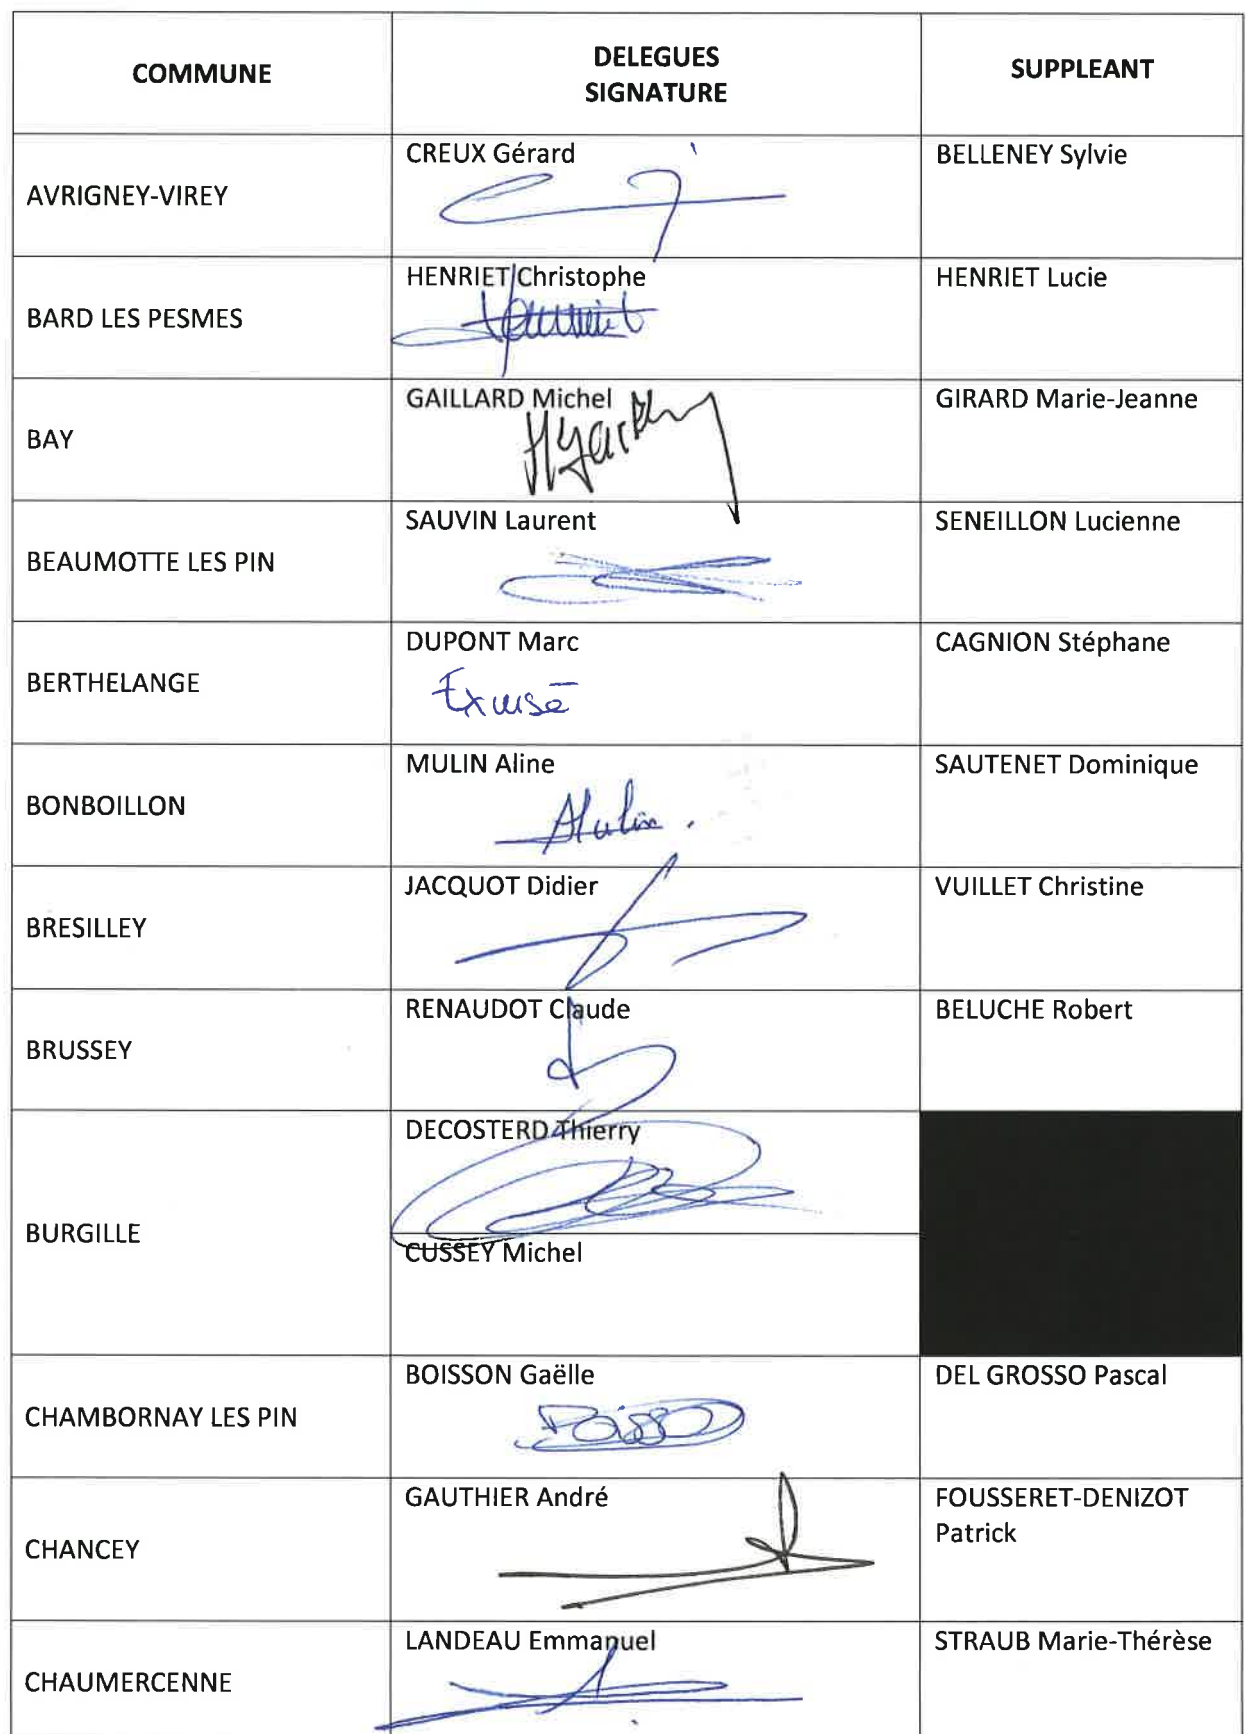 COMMUNE
DELEGUES
SIGNATURE
SUPPLEANT
AVRIGNEY-VIREY
CREUX Gérard
BELLENEY Sylvie
BARD LES PESMES
HENRIET Christophe
HENRIET Lucie
BAY
GAILLARD Michel
GIRARD Marie-Jeanne
BEAUMOTTE LES PIN
SAUVIN Laurent
SENEILLON Lucienne
BERTHELANGE
DUPONT Marc
Excusé
CAGNION Stéphane
BONBOILLON
MULIN Aline
AMulin.
SAUTENET Dominique
BRESILLEY
JACQUOT Didier
VUILLET Christine
BRUSSEY
RENAUDOT Claude
BELUCHE Robert
BURGILLE
DECOSTERD Thierry
CUSSEY Michel
CHAMBORNAY LES PIN
BOISSON Gaëlle
DEL GROSSO Pascal
CHANCEY
GAUTHIER André
FOUSSERET-DENIZOT
Patrick
CHAUMERCENNE
LANDEAU Emmanuel
STRAUB Marie-Thérèse